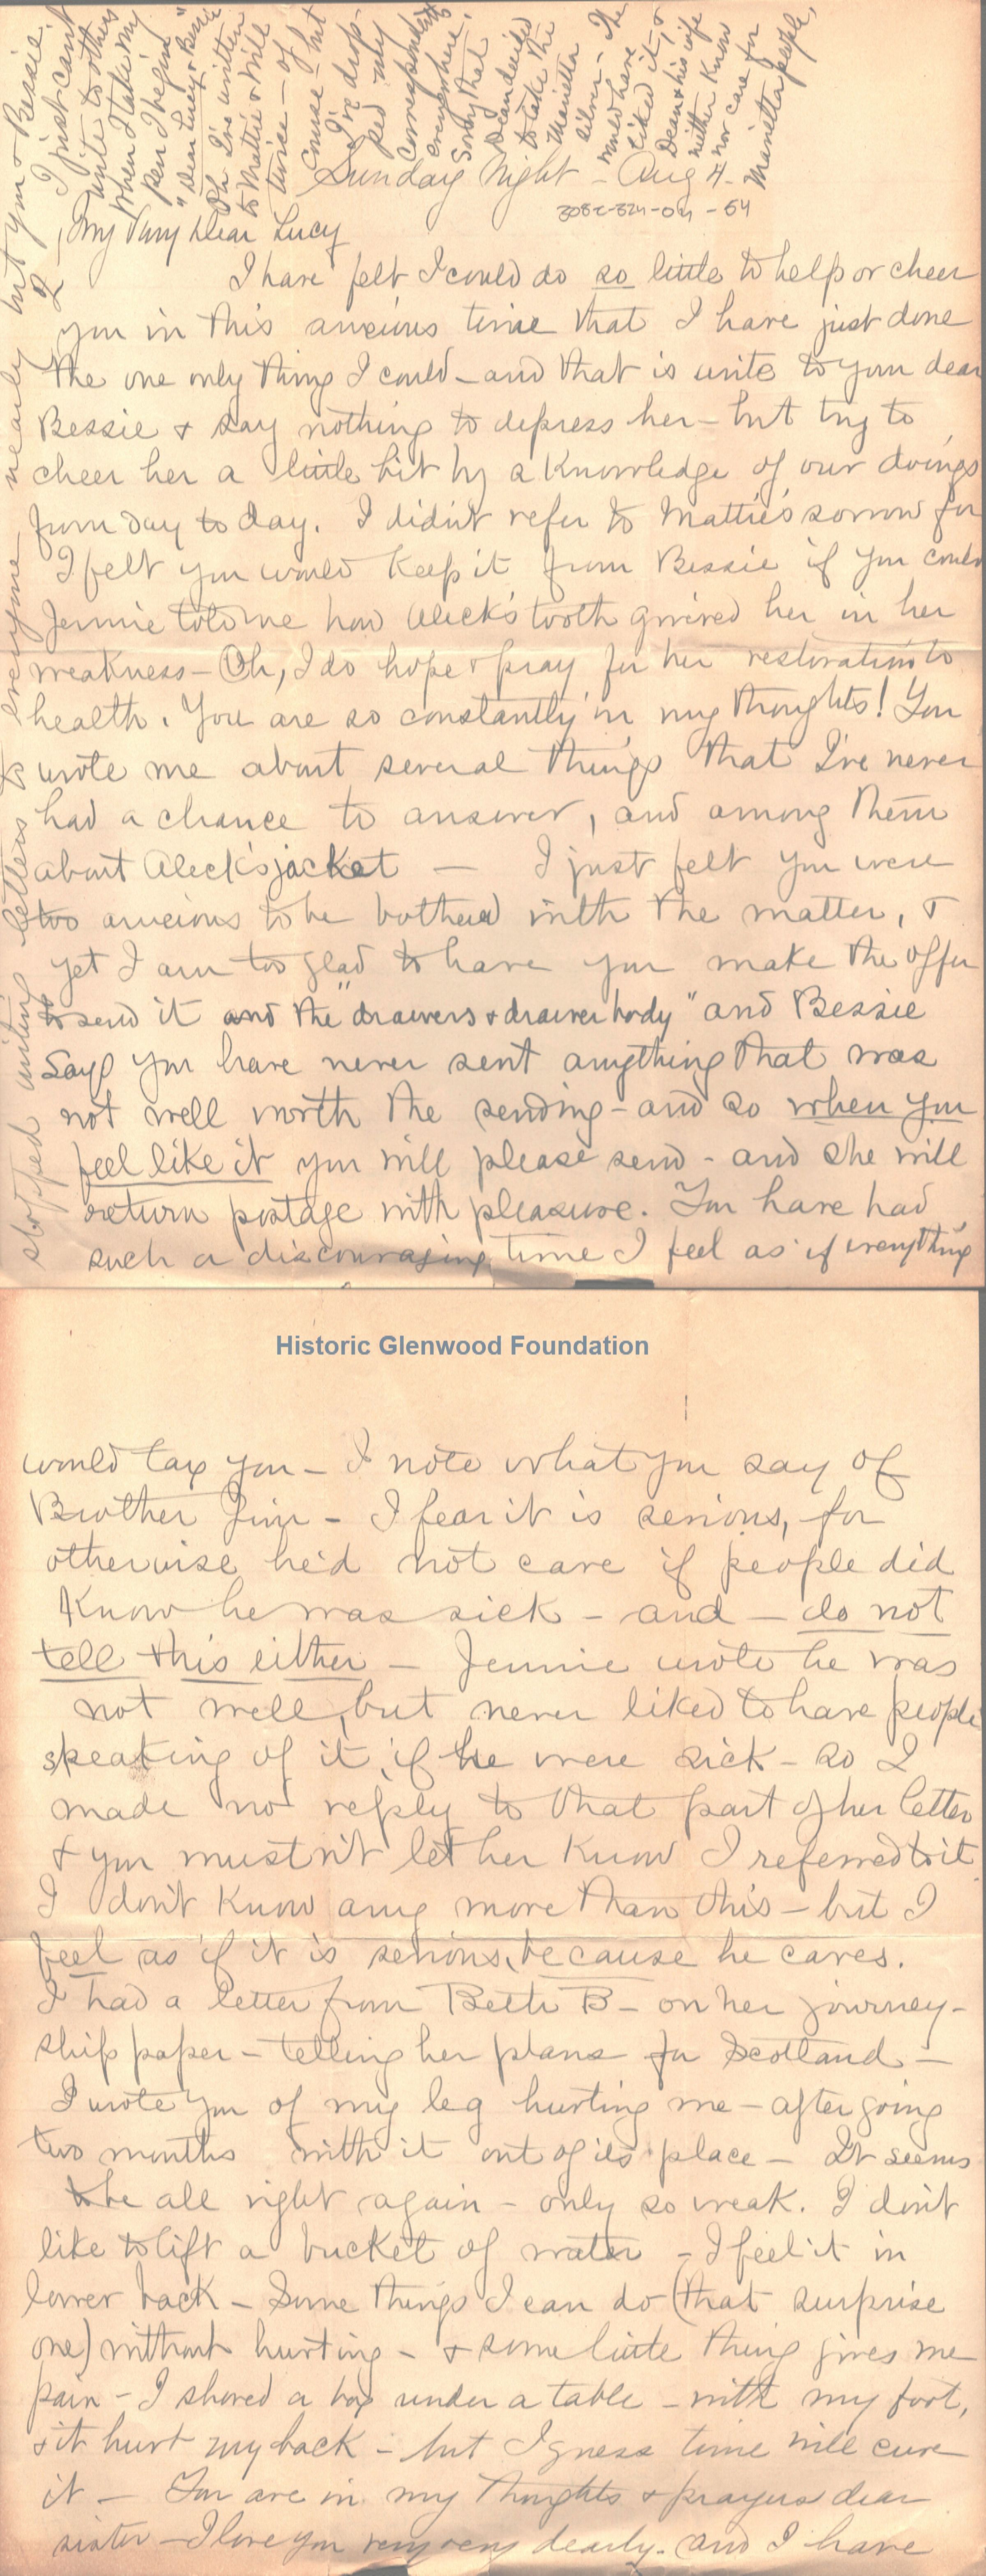 Sunday Night - Aug 4-
3082-324-04-54
My Very Dear Lucy
I have felt I could do so little to help or cheer
you in this anxious time that I have just done
the one only thing I could - and that is write to your dear
Bessie & say nothing to depress her - but try to
cheer her a little bit by a knowledge of our doings
from day to day. I didn't refer to Mattie's sorrow for
I felt you would keep it from Bessie if you could
Jennie told me how Aleck's tooth grieved her in her
weakness - Oh, I do hope & pray for her restoration to
health. You are so constantly in my thoughts! You
wrote me about several things that I've never
had a chance to answer, and among them
about Aleck's jacket - I just felt you were
too anxious to be bothered with the matter, &
yet I am too glad to have you make the offer
to send it and the "drawers & drawer body" and Bessie
says you have never sent anything that was
not well worth the sending - and so when you
feel like it you will please send - and she will
return postage with pleasure. You have had
such a discouraging time I feel as if everything
Historic Glenwood Foundation
would tax you - I note what you say of
Brother Jim - I fear it is serious, for
otherwise he'd not care if people did
know he was sick - and - do not
tell this either - Jennie wrote he was
not well, but never liked to have people
speaking of it, if he were sick - so I
made no reply to that part of her letter
& you mustn't let her know I referred to it
I don't know any more than this - but I
feel as if it is serious, because he cares.
I had a letter from Beth B - on her journey -
ship paper - telling her plans for Scotland -
I wrote you of my leg hurting me - after going
two months with it out of its place - It seems
to be all right again - only so weak. I don't
like to lift a bucket of water - I feel it in
lower back - Some things I can do (that surprise
one) without hurting - & some little thing gives me
pain - I shoved a box under a table - with my foot,
& it hurt my back - but I guess time will cure
it - You are in my thoughts & prayers dear
sister - I love you very very dearly - and I have
I
stopped writing letters to everyone nearly but you & Bessie.
I just can't
write to others
When I take my
pen I begin
"Dear Lucy & Bessie"
Oh I've written
to Mattie & Will
twice - of
course - but
I've drop-
ped my
correspondents
everywhere.
Sorry that
Dean decided
to take the
Marietta
silver - The
would have
liked it, &
Dean & his wife
neither know
nor care for
Marietta people,